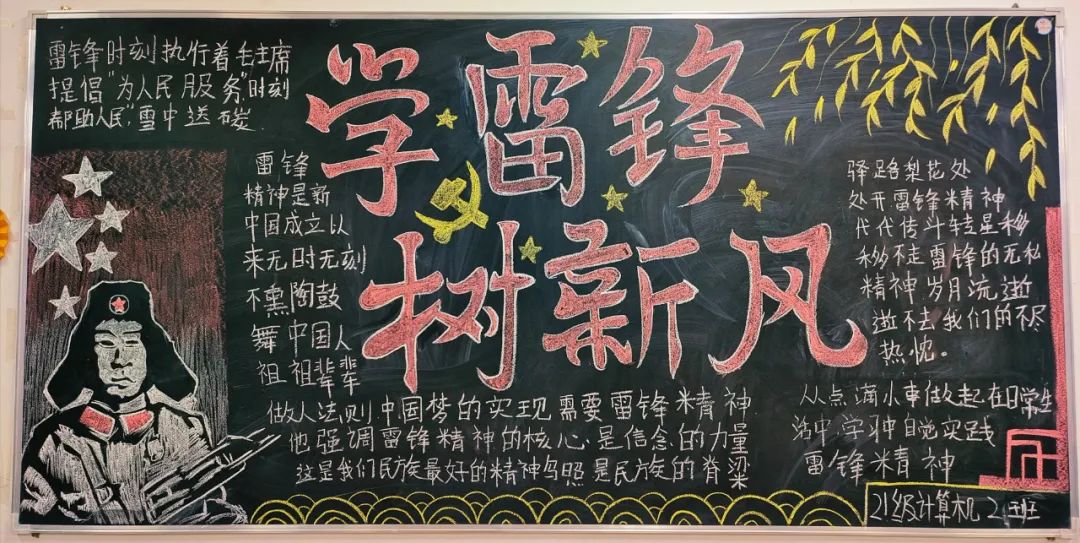 雷锋时刻执行着毛主席
提倡"为人民服务"时刻
帮助人民","雪中送碳.
学雷锋
树新风
雷锋
精神是新
中国成立以
来无时无刻
不熏陶鼓
舞中国人
祖祖辈辈
做人法则中国梦的实现需要雷锋精神.
他强调雷锋精神的核心是信念的力量
这是我们民族最好的精神写照是民族的脊梁
驿路梨花处
处开雷锋精神
代代传斗转星移
移不走雷锋的无私
精神岁月流逝
逝不去我们的不尽
热忱。
从点滴小事做起在日常生
活中学习中自觉实践
雷锋精神
21级计算机2班